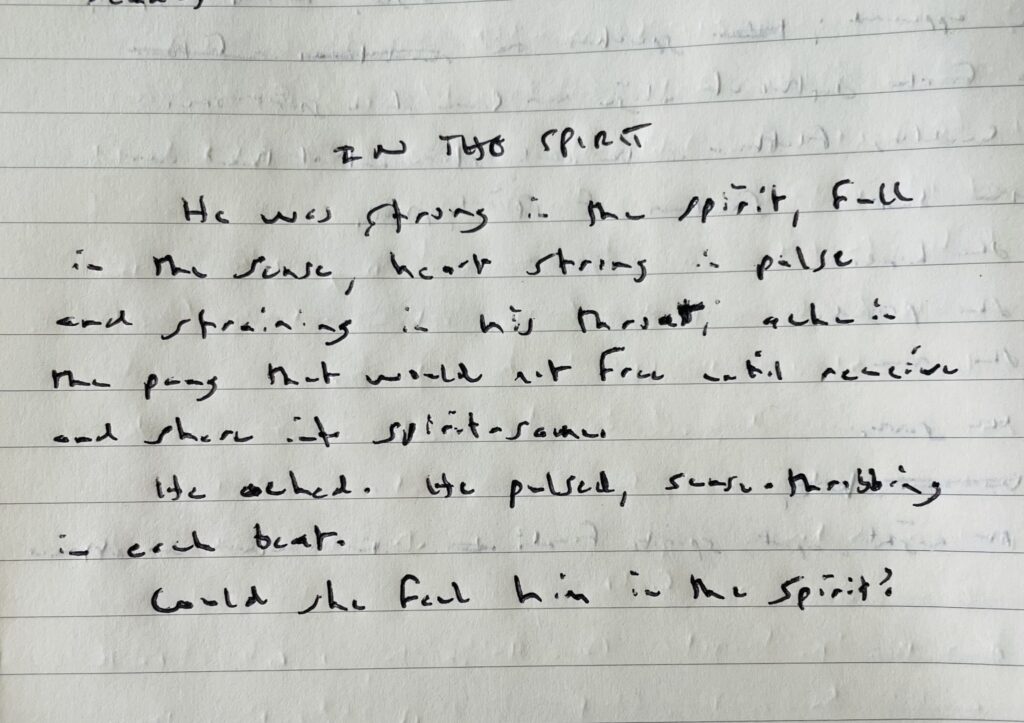 IN THE SPIRIT
He was strong in the spirit, full
in the sense, heart string in pulse
and straining in his throat, ache in
the pang that would not free until receive
and share into spirit-same.
He ached. He pulsed, sense-throbbing
in each beat.
Could she feel him in the spirit?